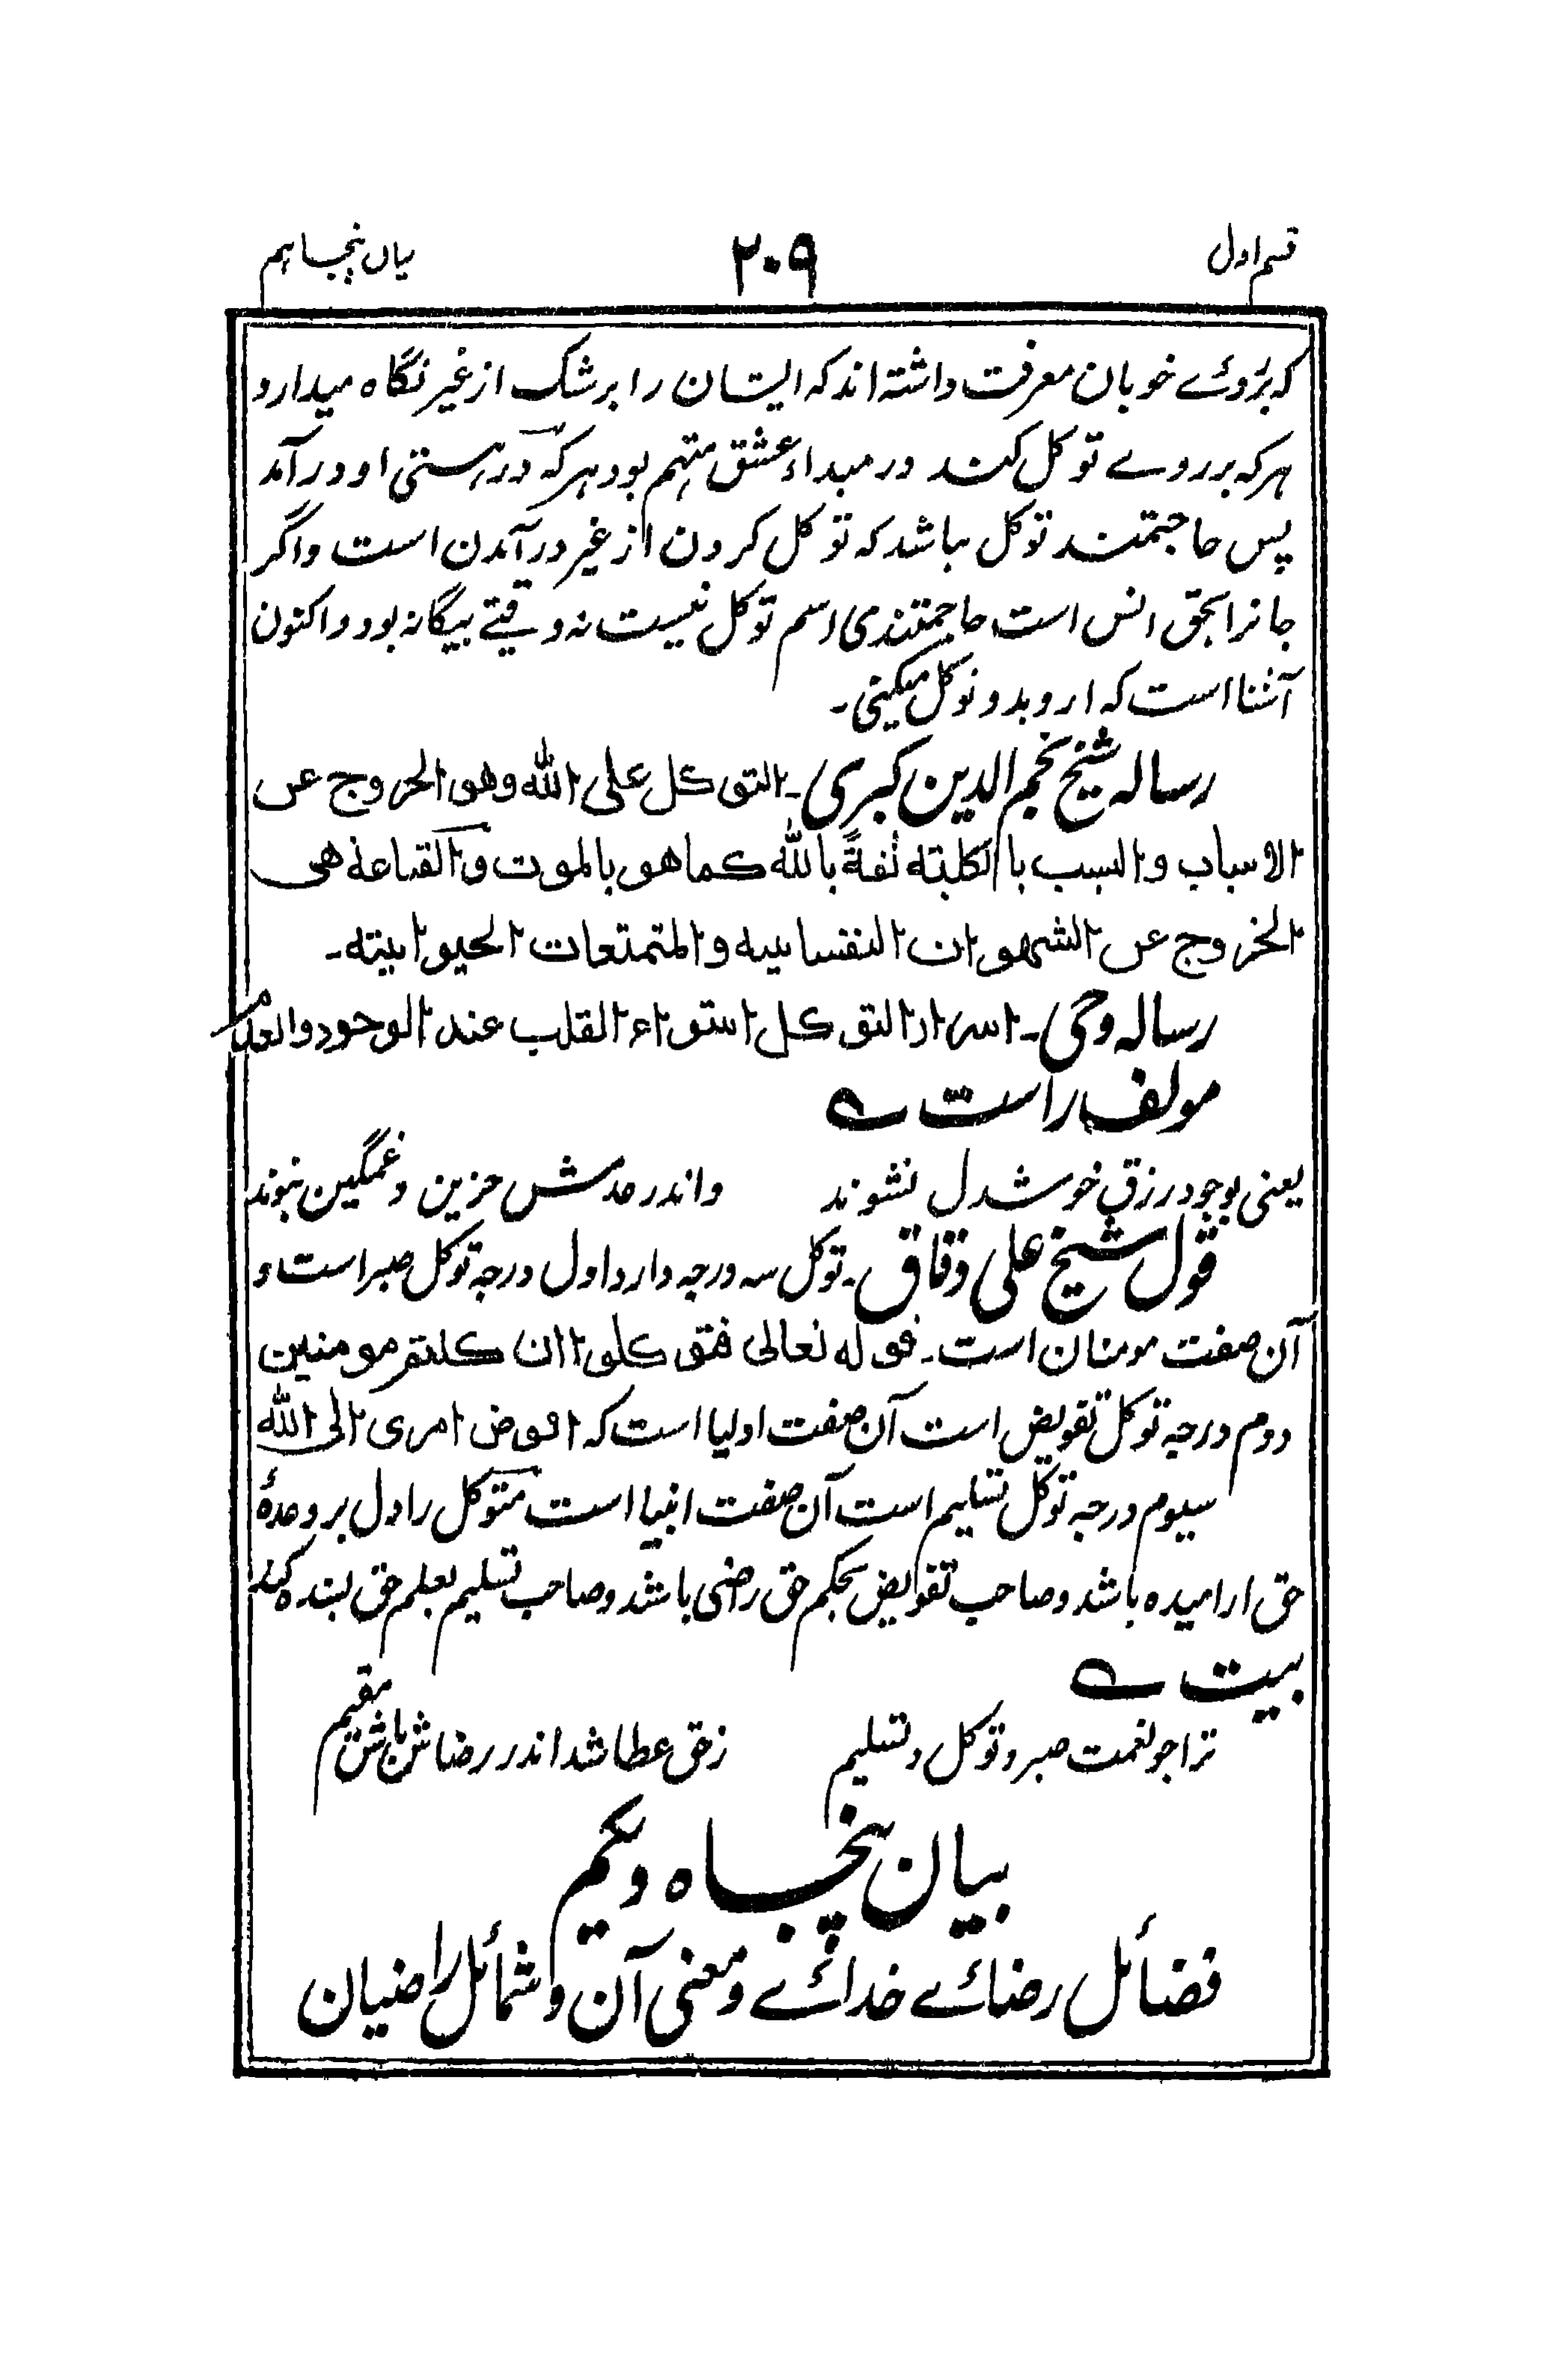 قسم اول ۲۰۹ بیان پنجاہم
کہ بروئے خوبان معرفت داشتہ اند کہ ایشان را برشک از غیر نگاہ میدارد و
ہر کہ برروے توکل کند در مبداء عشق متہم بود ہر کہ در ہستی او در آمد
پس حاجتمند توکل باشد کہ توکل کردن از غیر در آمدن است واگر
جانرا بحق انس است حاجتمندی اسم توکل نیست نہ وقتے بیگانہ بود واکنون
آشنا است کہ ار و بدو توکل میکنی۔
رسالہ شیخ نجم الدین کبری۔ التوکل علی الله وهو الخروج عن
الاسباب والسبب بالکلیته ثقةً بالله کما هو بالموت والقناعة هی
الخروج عن الشهوات النفسانیه والمتمتعات الحیوانیته۔
رسالہ وحی۔ اسرار التوکل استواء القلب عند الوجود والعدم
مولف راست ے
یعنی بوجود رزق خوشدل نشوند واندر عدمش حزین و غمگین نبوند
قول شیخ علی دقاق۔ توکل سہ درجہ دارد اول درجہ توکل صبر است و
آن صفت مومنان است۔ قوله تعالی فتوکلوا ان کنتم مومنین
دوم درجہ توکل تفویض است آن صفت اولیا است کہ افوض امری الی الله
سیوم درجہ توکل تسلیم است آن صفت انبیا است متوکل را دل بر وعدۂ
حق ارامیدہ باشد وصاحب تفویض بحکم حق رضی باشد وصاحب تسلیم بعلم حق بسندہ کند
بیت ے
ترا چو نعمت صبر و توکل و تسلیم زحق عطا شد اندر رضاش باش مقیم
بیان پنجاہ ویکم
فضائل رضائے خدائے ومعنی آن وشمائل راضیان